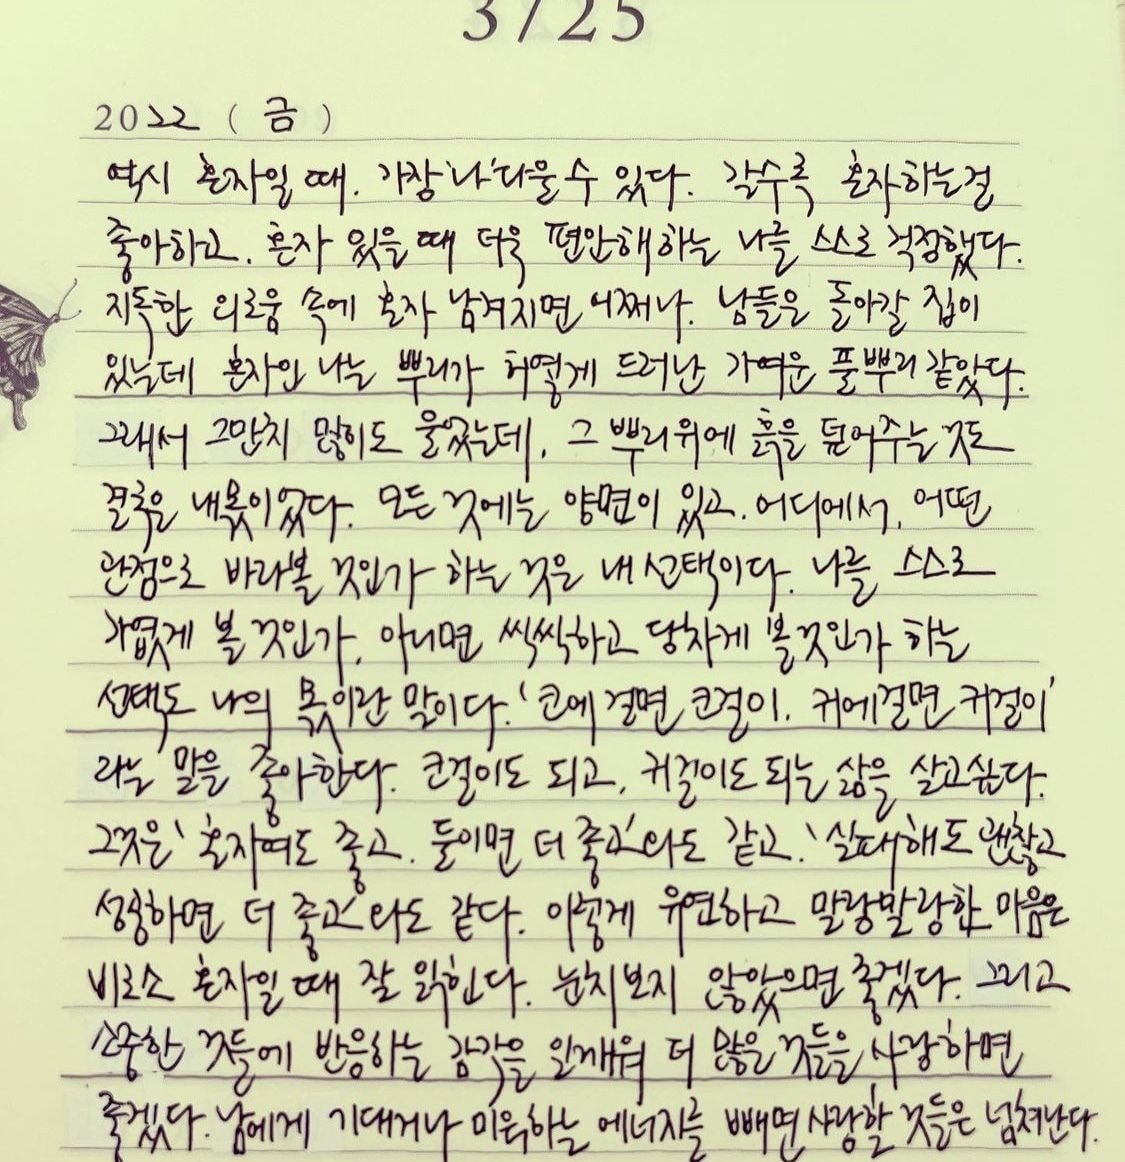 3/25
2022 ( 금 )
역시 혼자일 때. 가장 '나'다울 수 있다. 갈수록 혼자하는걸
좋아하고. 혼자 있을 때 더욱 편안해하는 나를 스스로 걱정했다.
지독한 외로움 속에 혼자 남겨지면 어쩌나. 남들은 돌아갈 집이
있는데 혼자인 나는 뿌리가 허옇게 드러난 가여운 풀뿌리 같았다.
그래서 그만치 많이도 울었는데, 그 뿌리위에 흙을 덮어주는 것도
결국은 내 몫이었다. 모든 것에는 양면이 있고. 어디에서, 어떤
관점으로 바라볼 것인가 하는 것은 내 선택이다. 나를 스스로
가엾게 볼 것인가, 아니면 씩씩하고 당차게 볼 것인가 하는
선택도 나의 몫이란 말이다. '코에 걸면 코걸이. 귀에걸면 귀걸이'
라는 말을 좋아한다. 코걸이도 되고, 귀걸이도 되는 삶을 살고싶다.
그것은 '혼자여도 좋고. 둘이면 더 좋고'와도 같고. '실패해도 괜찮고
성공하면 더 좋고'와도 같다. 이렇게 유연하고 말랑말랑한 마음은
비로소 혼자일 때 잘 읽힌다. 눈치보지 않았으면 좋겠다. 그리고
소중한 것들에 반응하는 감각을 일깨워 더 많은 것들을 사랑하면
좋겠다. 남에게 기대거나 미워하는 에너지를 빼면 사랑할 것들은 넘쳐난다.